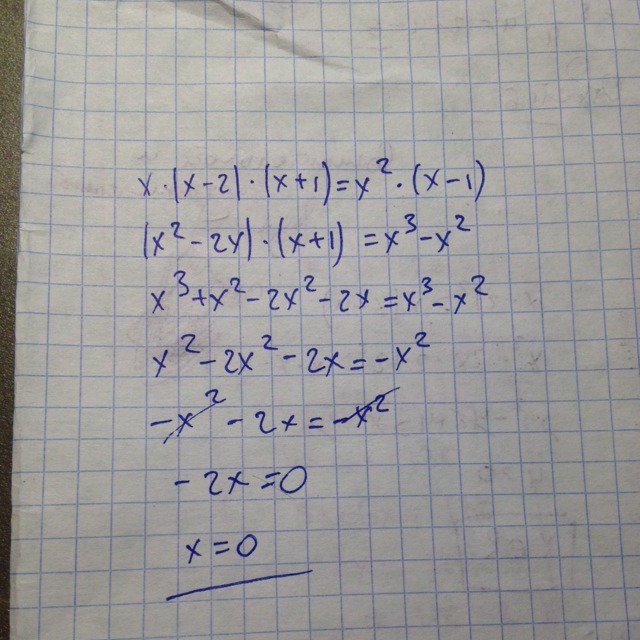 x·|x-2|·(x+1)=x²·(x-1)
|x²-2x|·(x+1)=x³-x²
x³+x²-2x²-2x=x³-x²
x²-2x²-2x=-x²
-x²-2x=-x²
-2x=0
x=0